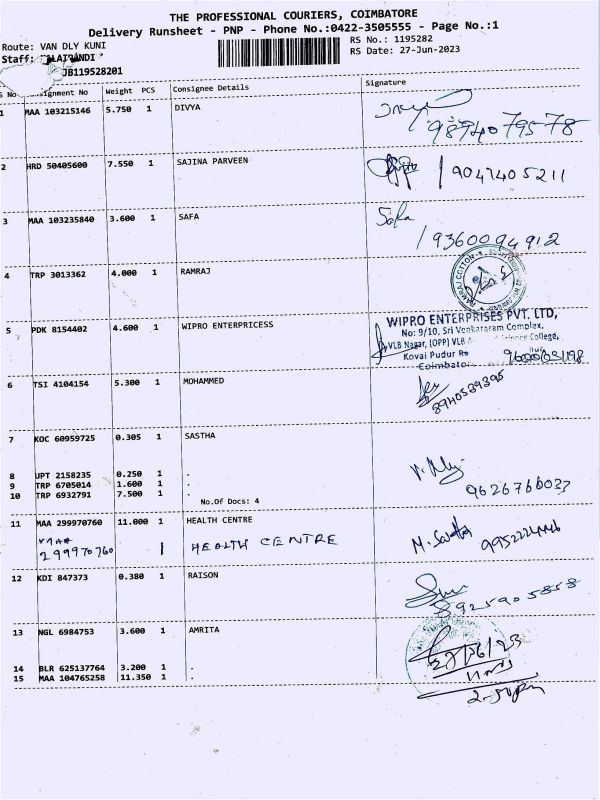 THE PROFESSIONAL COURIERS, COIMBATORE
Delivery Runsheet - PNP - Phone No.:0422-3505555 - Page No.:1
Route: VAN DLY KUNI
RS No.: 1195282
Staff:
RS Date: 27-Jun-2023
JB119528201
Consignment No Weight PCS Consignee Details Signature
1 MAA 103215146 5.750 1 DIVYA
9894079578
2 HRD 50405600 7.550 1 SAJINA PARVEEN
9047405211
3 MAA 103235840 3.600 1 SAFA Safa
9360094912
4 TRP 3013362 4.000 1 RAMRAJ
RAMRAJ COTTON
5 PDK 8154402 4.600 1 WIPRO ENTERPRICESS
WIPRO ENTERPRISES PVT. LTD,
No: 9/10, Sri Venkataram Complex,
VLB Nagar, (OPP) VLB College,
Kovai Pudur
Coimbatore
6 TSI 4104154 5.300 1 MOHAMMED
8940539395
7 KOC 60959725 0.305 1 SASTHA
8 UPT 2158235 0.250 1 .
9 TRP 6705014 1.600 1 .
10 TRP 6932791 7.500 1 .
9626766037
No.Of Docs: 4
11 MAA 299970760 11.000 1 HEALTH CENTRE
MAA
299970760 1 HEALTH CENTRE
12 KDI 847373 0.380 1 RAISON
8925905858
13 NGL 6984753 3.600 1 AMRITA
27/06/23
14 BLR 625137764 3.200 1 .
15 MAA 104765258 11.350 1 .
2.50pm